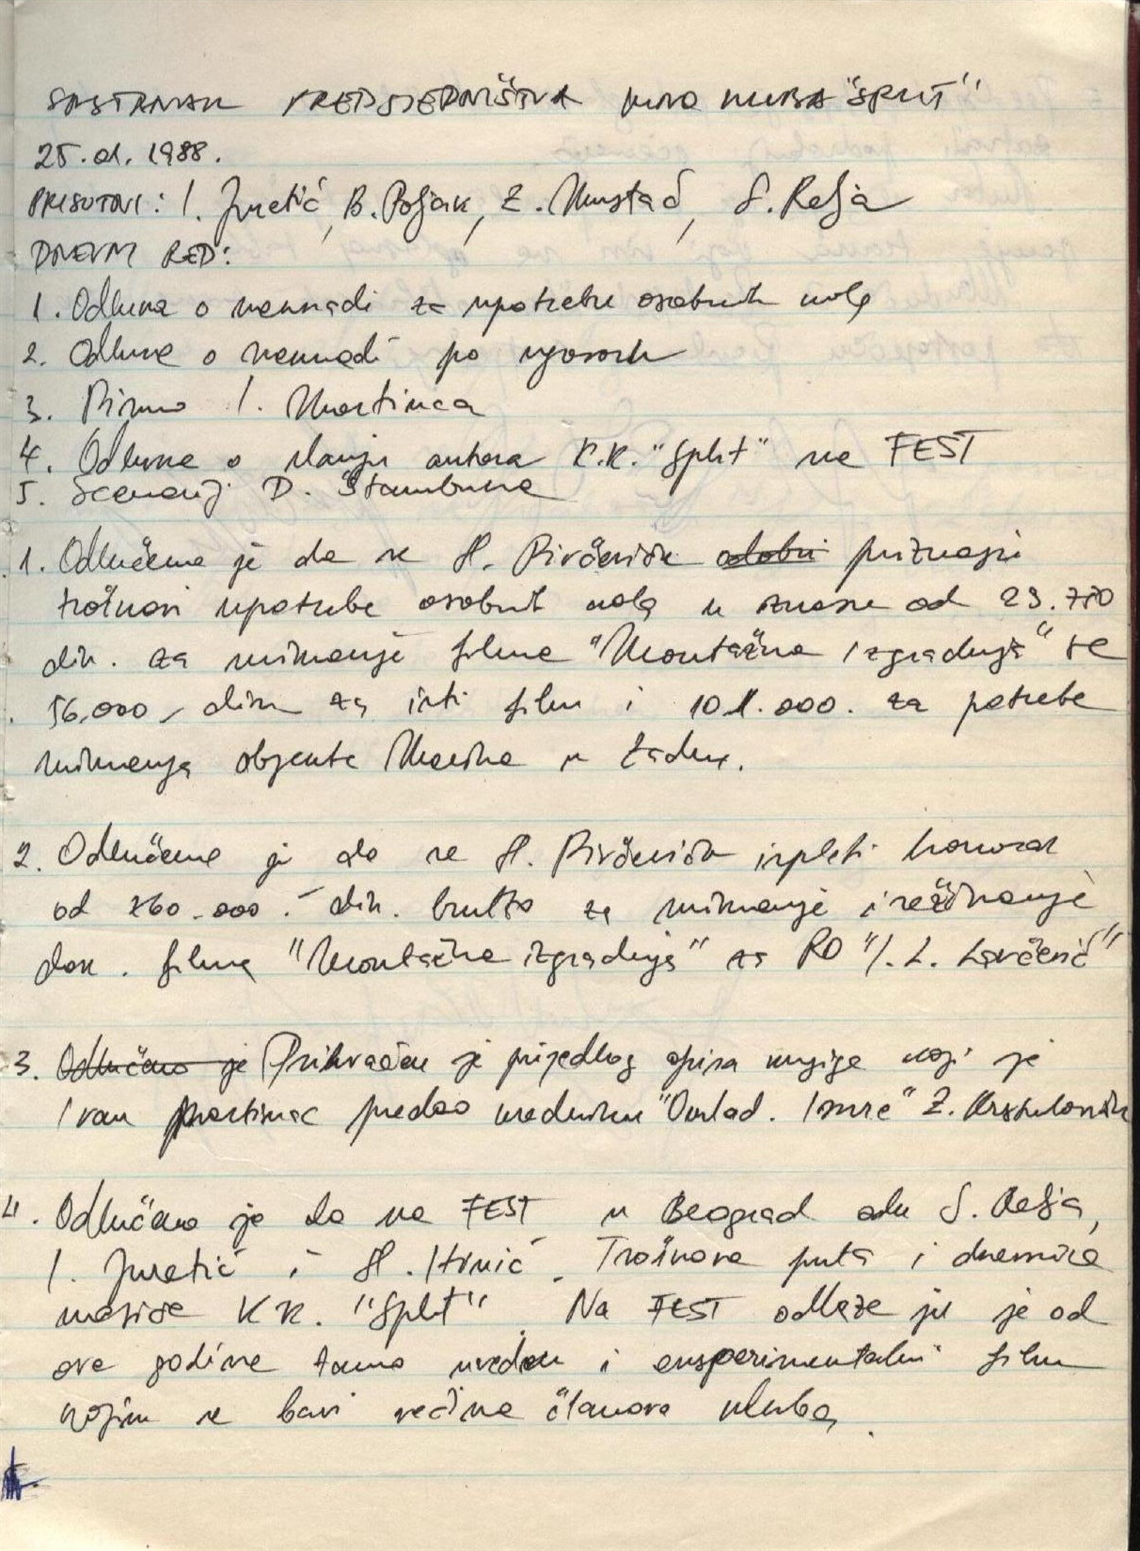 SASTANAK PREDSJEDNIŠTVA KINO KLUBA "SPLIT"
25.01.1988.
PRISUTNI: I. Juretić, B. Poljak, Z. Mustać, S. Relja
DNEVNI RED:
1. Odluka o naknadi za upotrebu osobnih kola
2. Odluka o naknadi po ugovoru
3. Pismo I. Martinca
4. Odluka o slanju autora K.K. "Split" na FEST
5. Scenarij D. Štambuka
1. Odlučeno je da se H. Pivčeviću odobri priznaju
troškovi upotrebe osobnih kola u iznosu od
din. za snimanje filma "Montažna izgradnja" te
56.000,- din za isti film i 101.000. za potrebe
snimanja objekta Marina u Zadru.
2. Odlučeno je da se H. Pivčeviću isplati honorar
od 260.000.- din. brutto za snimanje i režiranje
dok. filma "Montažna izgradnja" za RO "I. L. Lavčević"
3. Odlučeno je Prihvaćen je prijedlog opisa knjige koji je
Ivan Martinac predao uredniku "Omlad. Iskre" Z. Krstuloviću
4. Odlučeno je da na FEST u Beograd odu S. Relja,
I. Juretić i H. Troškove puta i dnevnice
snosiće KK. "Split". Na FEST odlaze jer je od
ove godine tamo uveden i eksperimentalni film
kojim se bavi većina članova kluba.